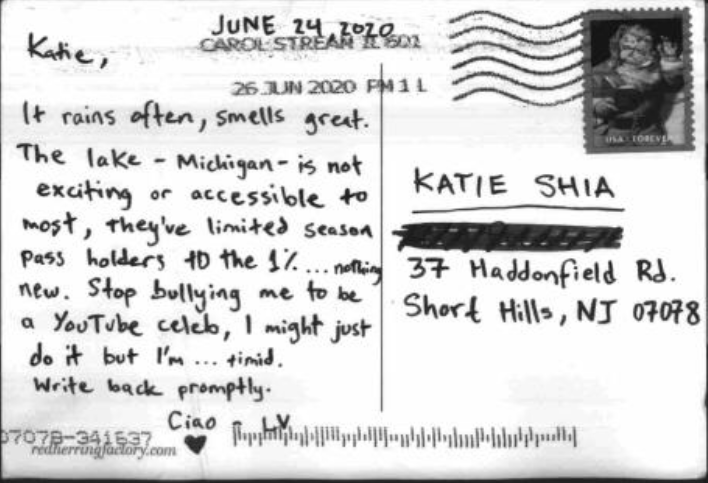 JUNE 24 2020
CAROL STREAM IL 601
26 JUN 2020 PM 1 L
USA FOREVER
Katie,
It rains often, smells great.
The lake - Michigan - is not
exciting or accessible to
most, they've limited season
pass holders to the 1% ... nothing
new. Stop bullying me to be
a YouTube celeb, I might just
do it but I'm ... timid.
Write back promptly.
Ciao - LV
♥
KATIE SHIA
37 Haddonfield Rd.
Short Hills, NJ 07078
07078-341537
redherringfactory.com